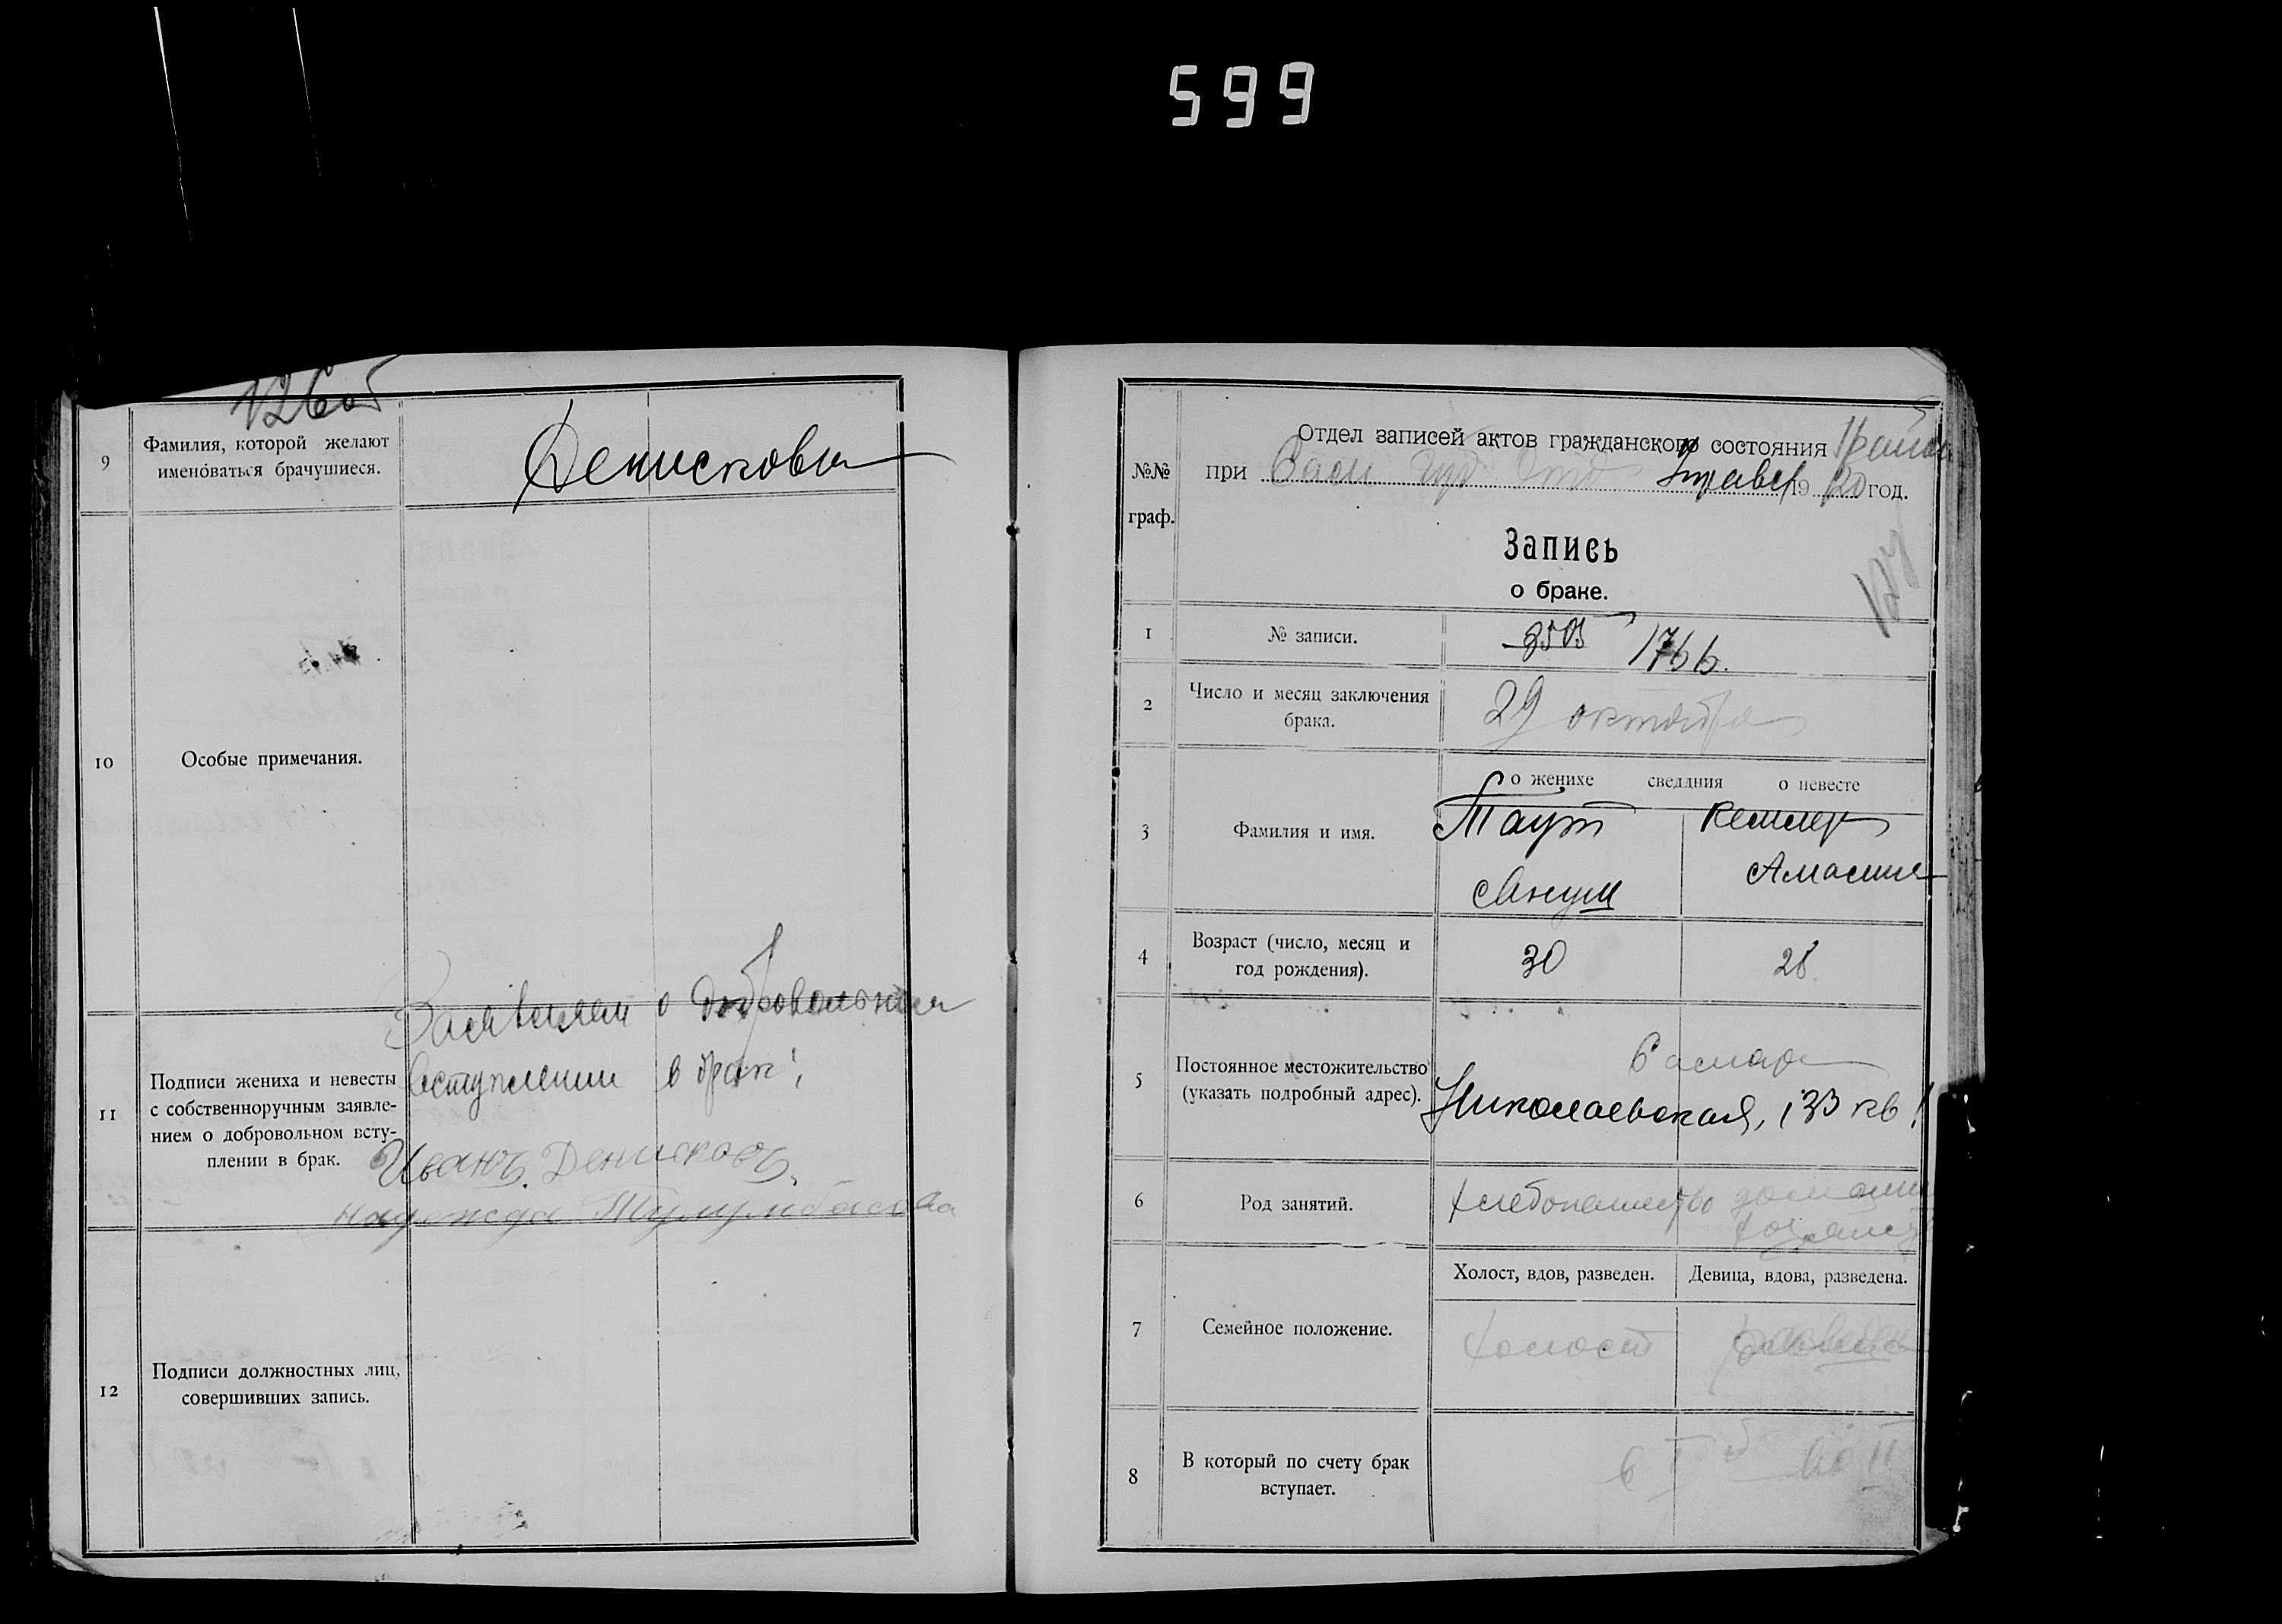 599
126об
9
Фамилия, которой желают
именоваться брачущиеся.
Денисковы
10
Особые примечания.
11
Подписи жениха и невесты
с собственноручным заявле-
нием о добровольном всту-
плении в брак.
Заявляем о добровольном
вступлении в брак:
Иванъ Денисковъ.
надежда
12
Подписи должностных лиц,
совершивших запись.
№№
граф.
Отдел записей актов гражданского состояния
при Сам Губ Отд Управл 1920 год.
127
Запись
о браке.
1
№ записи.
3505 1766.
2
Число и месяц заключения
брака.
29 октября
о женихе сведдния о невесте
3
Фамилия и имя.
Таут
4
Возраст (число, месяц и
год рождения).
30
28
5
Постоянное местожительство
(указать подробный адрес).
Самара
Николаевская, 133 кв 1
6
Род занятий.
хлебопашество
домашн
хозяйс
Холост, вдов, разведен. Девица, вдова, разведена.
7
Семейное положение.
холост
разведена
8
В который по счету брак
вступает.
в I й
во II